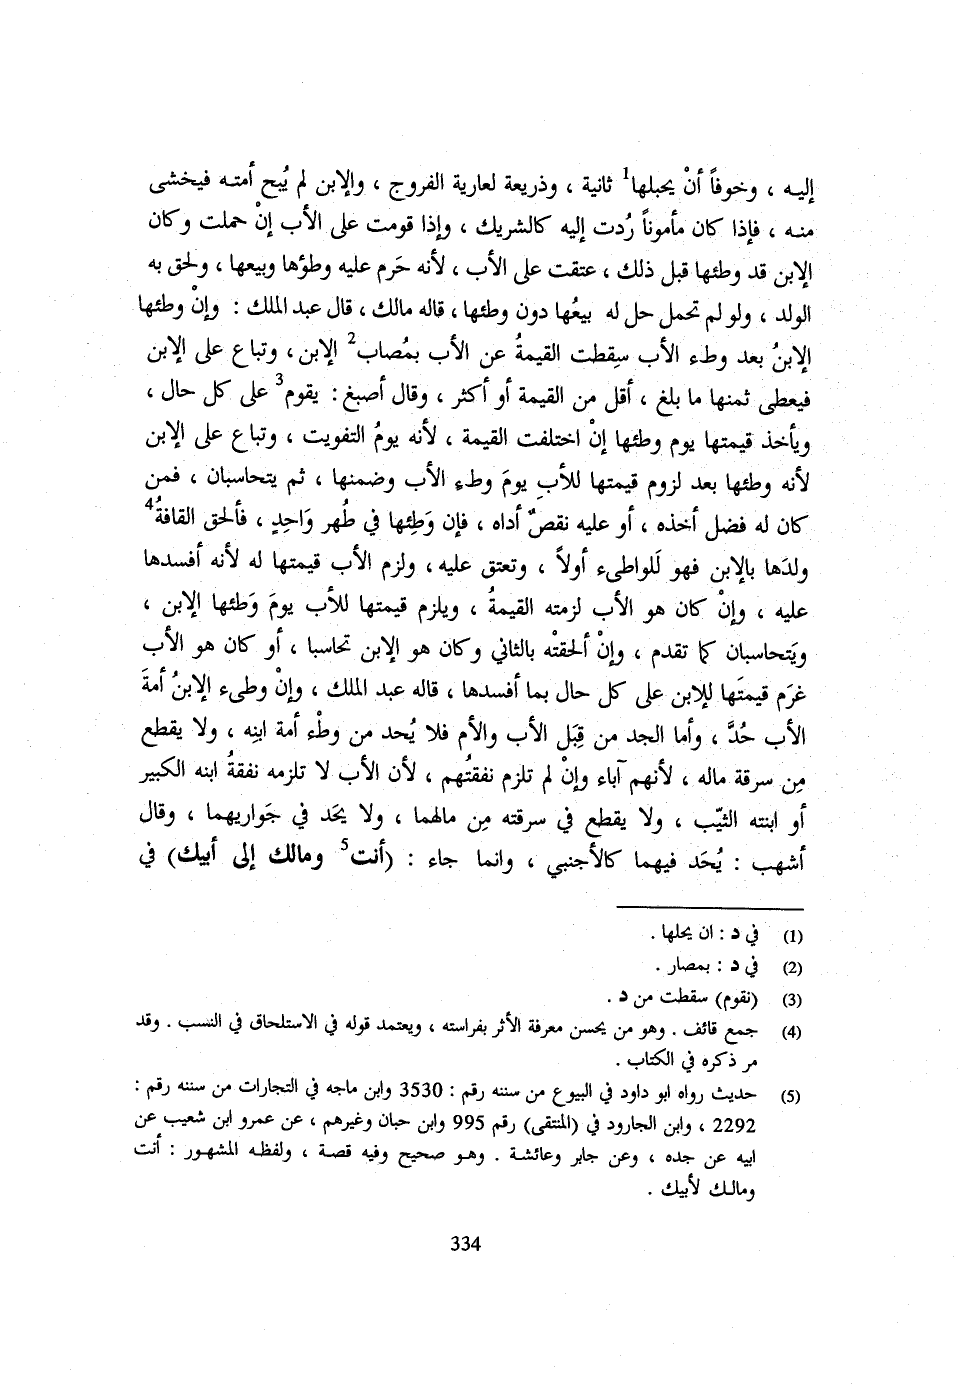 إليه ، وخوفاً أنْ يحبلها1 ثانية ، وذريعة لعارية الفروج ، والإبن لم يُبح أمته فيخشى
منه ، فإذا كان مأموناً رُدت إليه كالشريك ، وإذا قومت على الأب إنْ حملت وكان
الإبن قد وطئها قبل ذلك ، عتقت على الأب ، لأنه حَرم عليه وطؤها وبيعها ، ولحق به
الولد ، ولو لم تحمل حل له بيعُها دون وطئها ، قاله مالك ، قال عبد الملك : وإنْ وطئها
الإبنُ بعد وطء الأب سِقطت القيمةُ عن الأب بمُصاب2 الإبن ، وتباع على الإبن
فيعطى ثمنها ما بلغ ، أقل من القيمة أو أكثر ، وقال أصبغ : يقوم3 على كل حال ،
ويأخذ قيمتها يوم وطئها إنْ اختلفت القيمة ، لأنه يومُ التفويت ، وتباع على الإبن
لأنه وطئها بعد لزوم قيمتها للأبِ يومَ وطء الأب وضمنها ، ثم يتحاسبان ، فمن
كان له فضل أخذه ، أو عليه نقصٌ أداه ، فإن وَطِئها في طُهر وَاحِدٍ ، فألحق القافةُ4
ولدَها بالإبن فهو لَلواطىء أولاً ، وتعتق عليه ، ولزم الأب قيمتها له لأنه أفسدها
عليه ، وإنْ كان هو الأب لزمته القيمةُ ، ويلزم قيمتها للأب يومَ وَطئها الإبن ،
ويَتحاسبان كما تقدم ، وإنْ ألحقتْه بالثاني وكان هو الإبن تحاسبا ، أو كان هو الأب
غرَم قيمتَها للإبن على كل حال بما أفسدها ، قاله عبد الملك ، وإنْ وطىء الإبنُ أمةَ
الأب حُدَّ ، وأما الجد من قِبَل الأب والأم فلا يُحد من وطْء أمة ابنِه ، ولا يقطع
مِن سرقة ماله ، لأنهم آباء وإنْ لم تلزم نفقتُهم ، لأن الأب لا تلزمه نفقةُ ابنه الكبير
أو ابنته الثيّب ، ولا يقطع في سرقته مِن مالهما ، ولا يحَد في جَواريهما ، وقال
أشهب : يُحَد فيهما كالأجنبي ، وانما جاء : (أنت5 ومالك إلى أبيك) في
(1) في د : ان يحلها .
(2) في د : بمصار .
(3) (نقوم) سقطت من د .
(4) جمع قائف . وهو من يحسن معرفة الأثر بفراسته ، ويعتمد قوله في الاستلحاق في النسب . وقد
مر ذكره في الكتاب .
(5) حديث رواه ابو داود في البيوع من سننه رقم : 3530 وابن ماجه في التجارات من سننه رقم :
2292 ، وابن الجارود في (المنتقى) رقم 995 وابن حبان وغيرهم ، عن عمرو ابن شعيب عن
ابيه عن جده ، وعن جابر وعائشة . وهو صحيح وفيه قصة ، ولفظه المشهور : أنت
ومالك لأبيك .
334